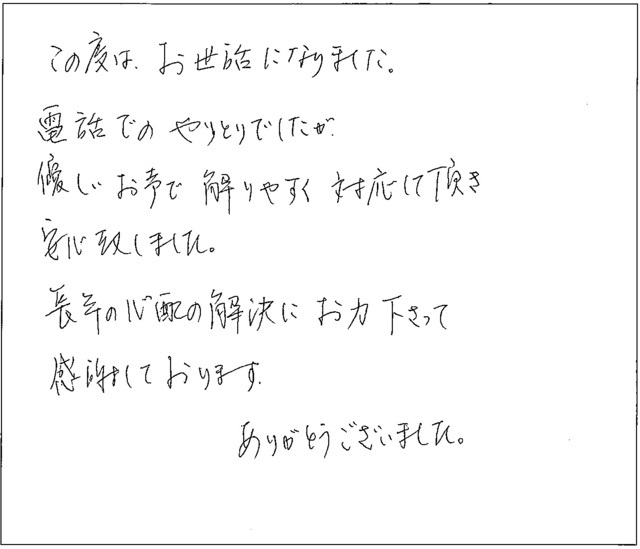 この度は、お世話になりました。
電話でのやりとりでしたが
優しいお声で解りやすく対応して頂き
安心致しました。
長年の心配の解決にお力下さって
感謝しております。
ありがとうございました。